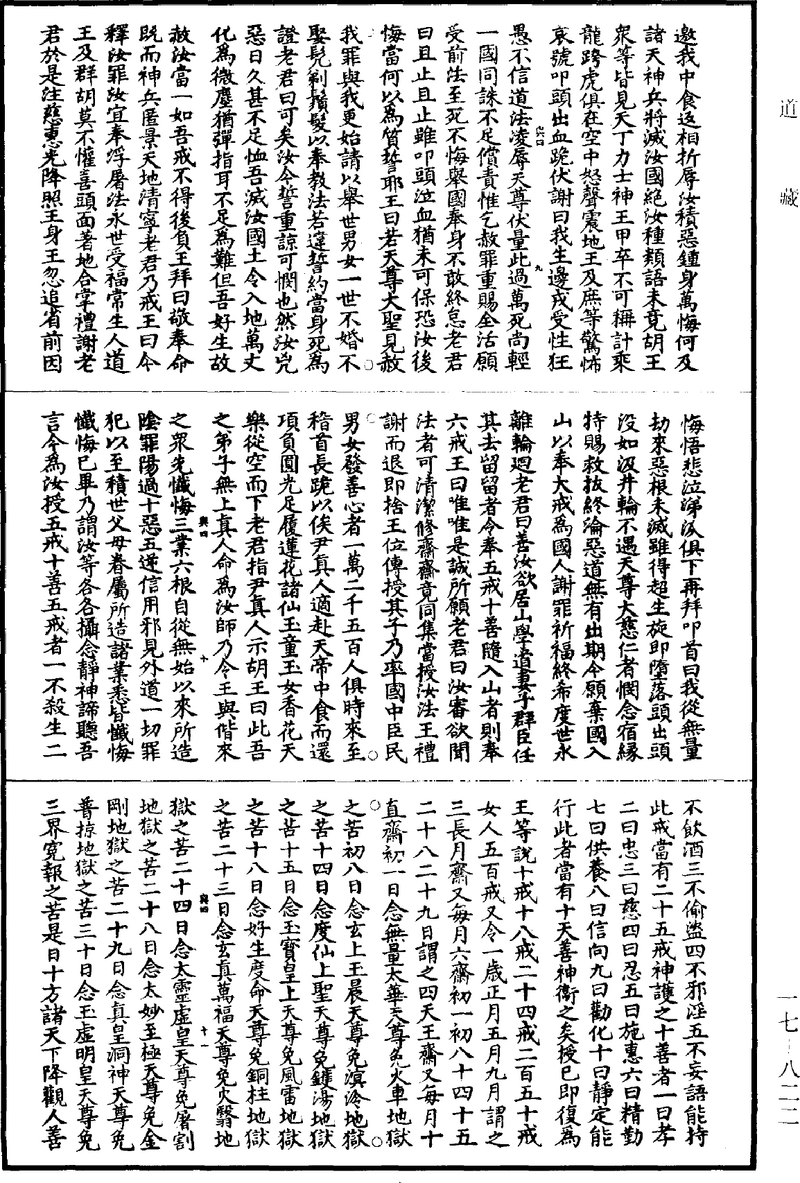 道藏
邀我中食返相折辱汝積惡鍾身萬悔何及
諸天神兵將滅汝國絕汝種類語未竟胡王
衆等皆見天丁力士神王甲卒不可稱計乘
龍跨虎俱在空中怒聲震地王及庶等驚怖
哀號叩頭出血跪伏謝曰我生邊戎受性狂
愚不信道法凌辱天尊伏量此過萬死尚輕
一國同誅不足償責惟乞赦罪重賜全活願
受前法至死不悔舉國奉身不敢終怠老君
曰且止且止雖叩頭泣血猶未可保恐汝後
悔當何以為質誓耶王曰若天尊大聖見赦
我罪與我更始請以舉世男女一世不婚不
娶髠剃鬚髮以奉教法若違誓約當身死為
證老君曰可矣汝今誓重諒可憫也然汝兇
惡日久甚不足恤吾滅汝國土令入地萬丈
化為微塵猶彈指耳不足為難但吾好生故
赦汝當一如吾戒不得後負王拜曰敬奉命
既而神兵匿景天地清寧老君乃戒王曰今
釋汝罪汝宜奉浮屠法永世受福常生人道
王及群胡莫不懽喜頭面著地合掌禮謝老
君於是注慈惠光降照王身王忽追省前因
悔悟悲泣涕淚俱下再拜叩首曰我從無量
劫來惡根未滅雖得超生旋即墮落頭出頭
沒如汲井輪不遇天尊大慈仁者憫念宿緣
特賜救拔終淪惡道無有出期今願棄國入
山以奉大戒為國人謝罪祈福終希度世永
離輪迴老君曰善汝欲居山學道妻子群臣任
其去留留者令奉五戒十善隨入山者則奉
六戒王曰唯唯是誠所願老君曰汝審欲聞
法者可清潔修齋齋竟同集當授汝法王禮
謝而退即捨王位傳授其子乃率國中臣民
男女發善心者一萬二千五百人俱時來至
稽首長跪以俟尹真人適赴天帝中食而還
項負圓光足履蓮花諸仙玉童玉女香花天
樂從空而下老君指尹真人示胡王曰此吾
之弟子無上真人命為汝師乃令王與偕來
之眾先懺悔三業六根自從無始以來所造
陰罪陽過十惡五逆信用邪見外道一切罪
犯以至積世父母眷屬所造諸業悉皆懺悔
懺悔已畢乃謂汝等各各攝念靜神諦聽吾
言今為汝授五戒十善五戒者一不殺生二
不飲酒三不偷盜四不邪淫五不妄語能持
此戒當有二十五戒神護之十善者一曰孝
二曰忠三曰慈四曰忍五曰施惠六曰精勤
七曰供養八曰信向九曰勸化十曰靜定能
行此者當有十天善神衛之矣授已即復為
王等說十戒十八戒二十四戒二百五十戒
女人五百戒又令一歲正月五月九月謂之
三長月齋又每月六齋初一初八十四十五
二十八二十九日謂之四天王齋又每月十
直齋初一日念無量太華天尊免火車地獄
之苦初八日念玄上玉晨天尊免溟泠地獄
之苦十四日念度仙上聖天尊免鑊湯地獄
之苦十五日念玉寶皇上天尊免風雷地獄
之苦十八日念好生度命天尊免銅柱地獄
之苦二十三日念玄真萬福天尊免火翳地
獄之苦二十四日念太靈虛皇天尊免屠割
地獄之苦二十八日念太妙至極天尊免金
剛地獄之苦二十九日念真皇洞神天尊免
普掠地獄之苦三十日念玉虛明皇天尊免
三界冤報之苦是日十方諸天下降觀人善
一七-八二二